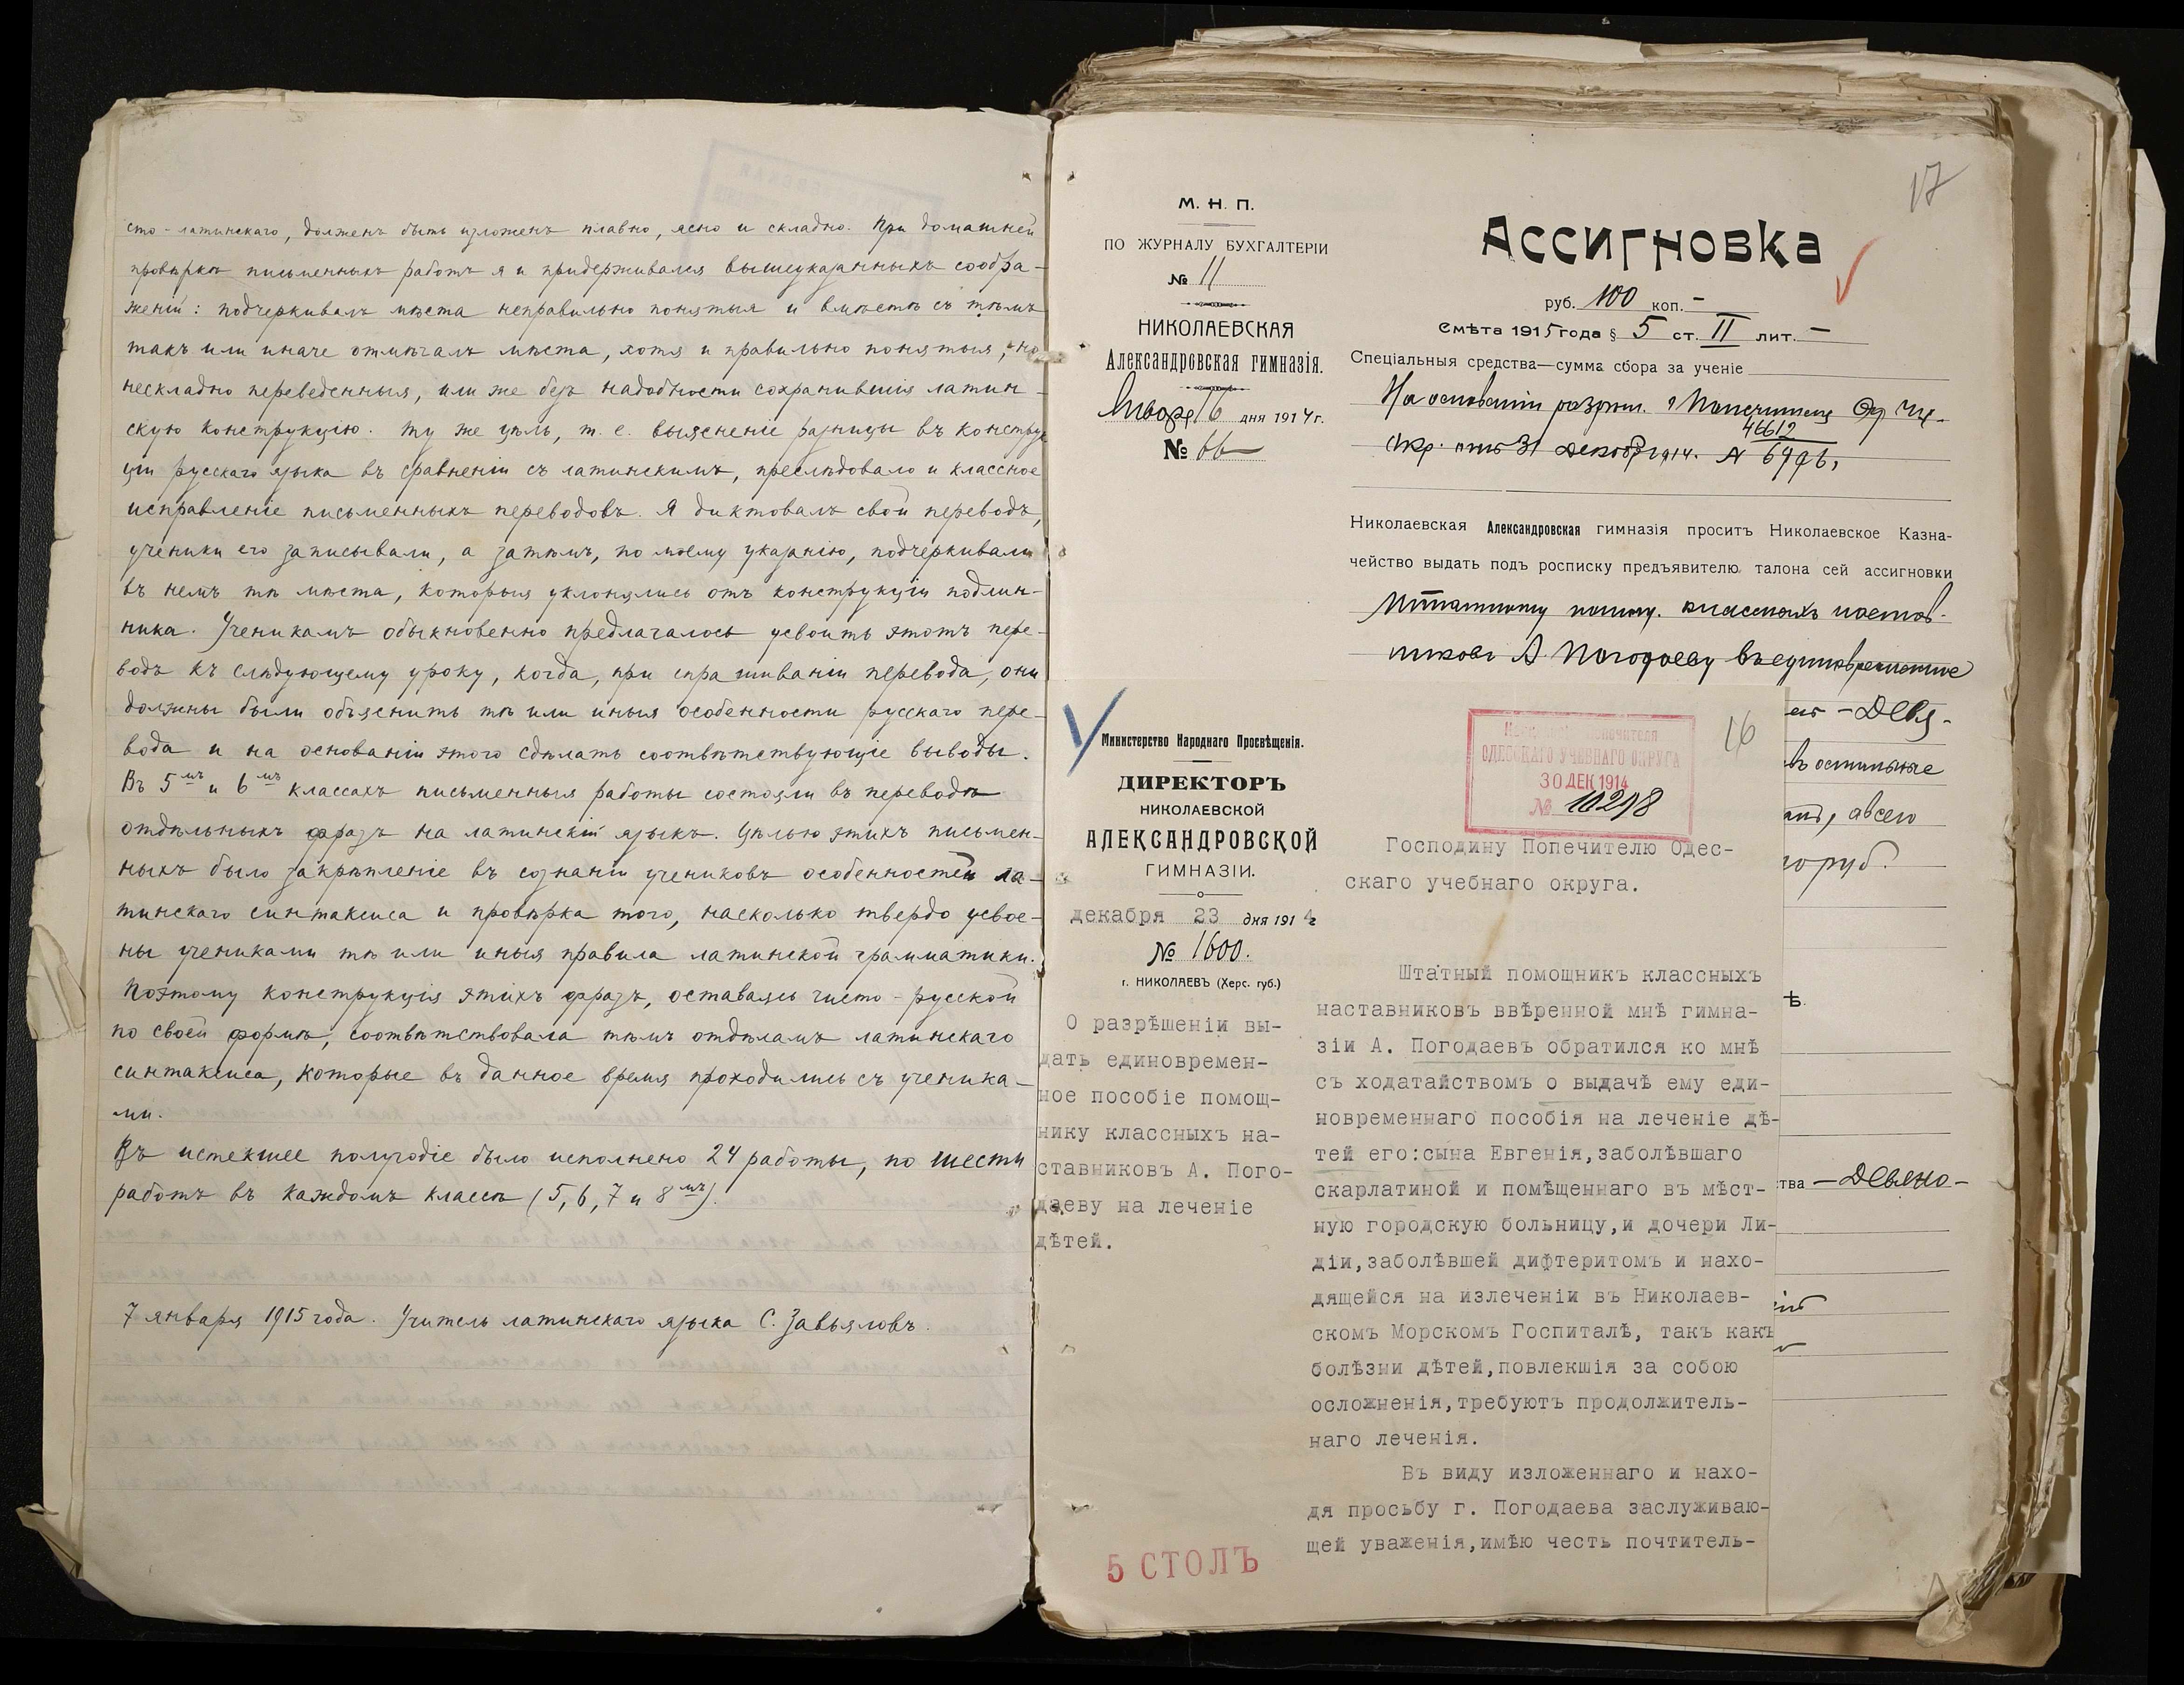 сто-латинскаго, долженъ быть изложенъ плавно, ясно и складно. При домашней
провѣркѣ письменныхъ работъ я и придерживался вышеуказанныхъ сообра-
женій: подчеркивалъ мѣста неправильно понятыя и вмѣстѣ съ тѣмъ
такъ или иначе отмѣчалъ мѣста, хотя и правильно понятыя, но
нескладно переведенныя, или же безъ надобности сохранившія латин-
скую конструкцію. Ту же цѣль, т. е. выясненіе разницы въ конструк
ціи русскаго языка въ сравненіи съ латинскимъ, преслѣдовало и классное
исправленіе письменныхъ переводовъ. Я диктовалъ свой переводъ,
ученики его записывали, а затѣмъ, по моему указанію, подчеркивали
въ немъ тѣ мѣста, которыя уклонялись отъ конструкціи подлин-
ника. Ученикамъ обыкновенно предлагалось усвоить этотъ пере-
водъ къ слѣдующему уроку, когда, при спрашиваніи перевода, они
должны были объяснить тѣ или иныя особенности русскаго пере-
вода и на основаніи этого сдѣлать соотвѣтствующіе выводы.
Въ 5мъ и 6мъ классахъ письменныя работы состояли въ переводѣ
отдѣльныхъ фразъ на латинскій языкъ. Цѣлью этихъ письмен-
ныхъ было закрѣпленіе въ сознаніи учениковъ особенностей ла-
тинскаго синтаксиса и провѣрка того, насколько твердо усвое-
ны учениками тѣ или иныя правила латинской грамматики.
Поэтому конструкція этихъ фразъ, оставаясь чисто-русской
по своей формѣ, соотвѣтствовала тѣмъ отдѣламъ латинскаго
синтаксиса, которые въ данное время проходились съ ученика-
ми.
Въ истекшее полугодіе было исполнено 24 работы, по шести
работъ въ каждомъ классѣ (5, 6, 7 и 8мъ).
7 января 1915 года. Учитель латинскаго языка С. Завьяловъ.
17
М. Н. П.
ПО ЖУРНАЛУ БУХГАЛТЕРІИ
№ 11
НИКОЛАЕВСКАЯ
Александровская гимназія.
Января 16 дня 1914 г.
№ 66
Ассигновка
руб. 100 коп. -
Смѣта 1915 года § 5 ст. II лит. -
Спеціальныя средства—сумма сбора за ученіе
На основаніи разрѣш. г Попечителя Од Уч.
Окр. отъ 31 декабр 1914. №
46612
6496,
Николаевская Александровская гимназія проситъ Николаевское Казна-
чейство выдать подъ росписку предъявителю талона сей ассигновки
Штатному помощ. классныхъ настав-
никовъ А. Погодаеву въ единовременное
- Девя-
остальные
, а всего
руб.
ѣ.
тва - Девяно-
16
Министерство Народнаго Просвѣщенія.
ДИРЕКТОРЪ
НИКОЛАЕВСКОЙ
АЛЕКСАНДРОВСКОЙ
ГИМНАЗІИ.
декабря 23 дня 1914 г
№ 1600.
г. НИКОЛАЕВЪ (Херс. губ.)
О разрѣшеніи вы-
дать единовремен-
ное пособіе помощ-
нику классныхъ на-
ставниковъ А. Пого-
даеву на леченіе
дѣтей.
5 СТОЛЪ
Попечителя
ОДЕССКАГО УЧЕБНАГО ОКРУГА
30 ДЕК 1914
№ 10298
Господину Попечителю Одес-
скаго учебнаго округа.
Штатный помощникъ классныхъ
наставниковъ ввѣренной мнѣ гимна-
зіи А. Погодаевъ обратился ко мнѣ
съ ходатайствомъ о выдачѣ ему еди-
новременнаго пособія на леченіе дѣ-
тей его:сына Евгенія,заболѣвшаго
скарлатиной и помѣщеннаго въ мѣст-
ную городскую больницу,и дочери Ли-
діи,заболѣвшей дифтеритомъ и нахо-
дящейся на излеченіи въ Николаев-
скомъ Морскомъ Госпиталѣ, такъ какъ
болѣзни дѣтей,повлекшія за собою
осложненія,требуютъ продолжитель-
наго леченія.
Въ виду изложеннаго и нахо-
дя просьбу г. Погодаева заслуживаю-
щей уваженія,имѣю честь почтитель-